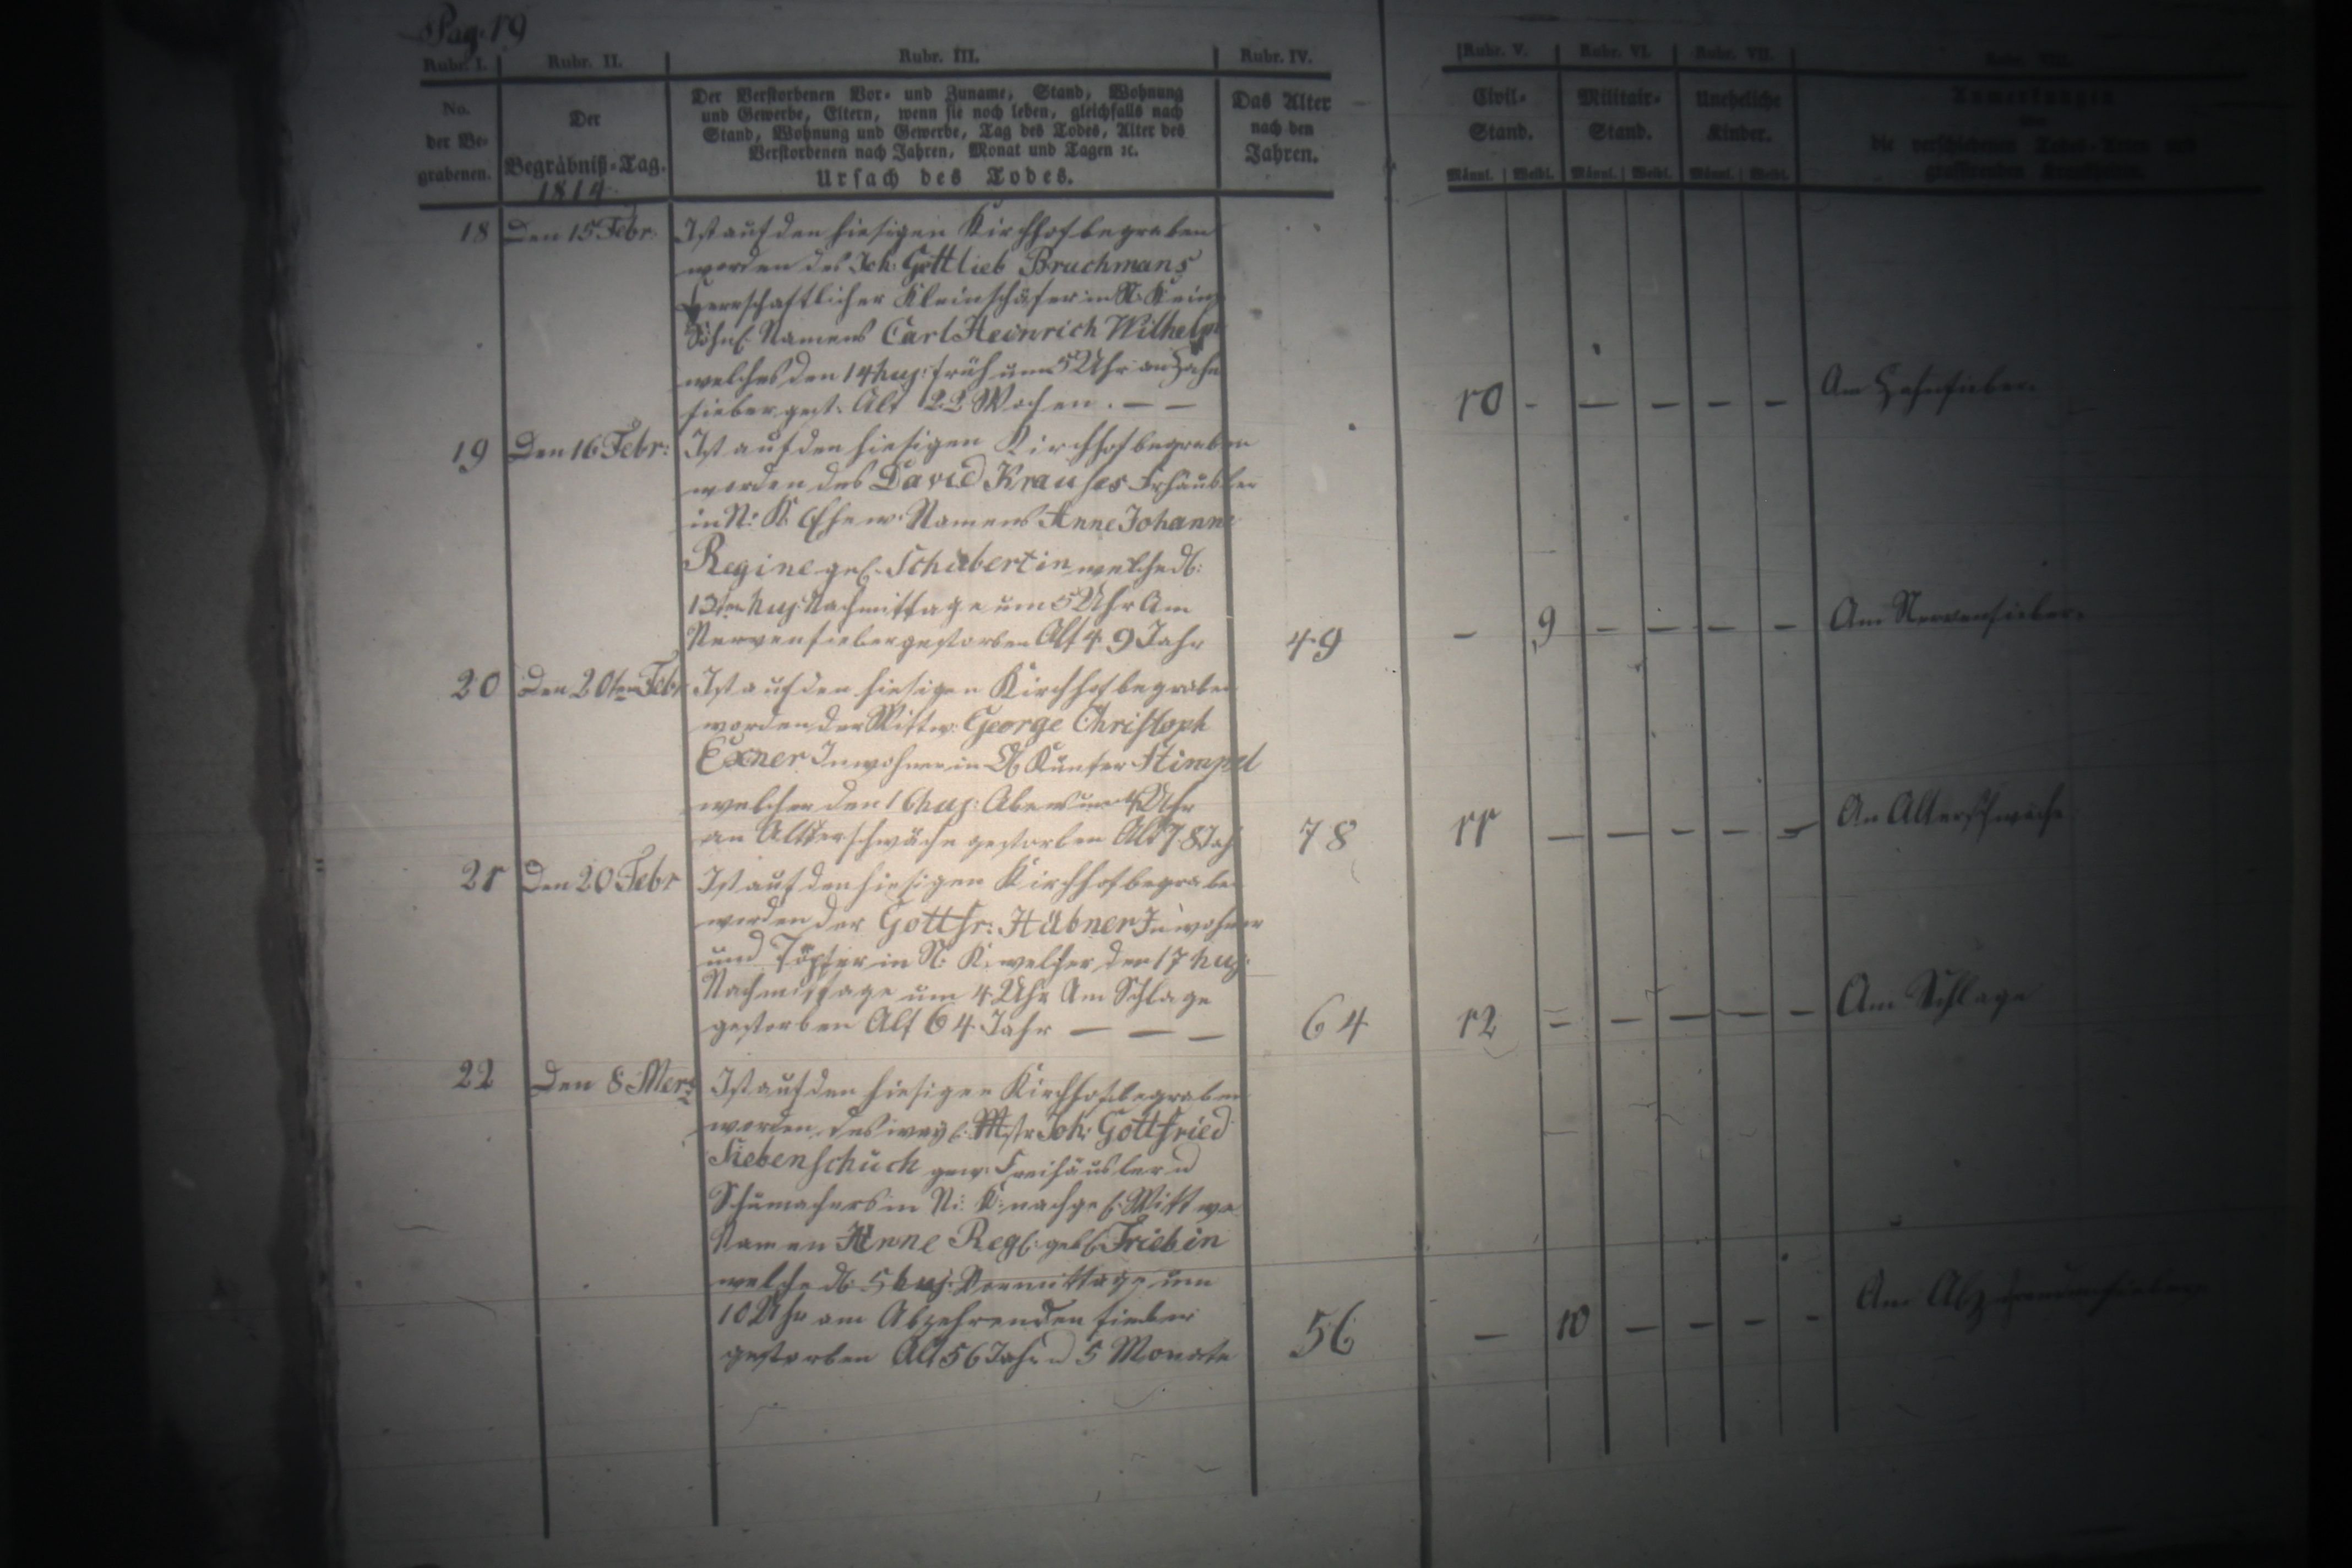 Pag. 19
Rubr. I. Rubr. II. Rubr. III. Rubr. IV. Rubr. V. Rubr. VI. Rubr. VII.
No. der Be-grabenen.
Der Begräbniß-Tag.
1814.
Der Verstorbenen Vor- und Zuname, Stand, Wohnung
und Gewerbe, Eltern, wenn sie noch leben, gleichfalls nach
Stand, Wohnung und Gewerbe, Tag des Todes, Alter des
Verstorbenen nach Jahren, Monat und Tagen ꝛc.
Ursach des Todes.
Das Alter
nach den
Jahren.
Civil-Stand.
Militair-Stand.
Uneheliche Kinder.
Männl. Weibl. Männl. Weibl. Männl. Weibl.
Anmerkungen
über
die verschiedenen Todes-Arten und
grassirenden Krankheiten.
18 Den 15 Febr. Ist auf den hiesigen Kirchhof begraben
worden des Joh: Gottlieb Bruchmans
Herrschaftlicher Kleinschäfer in N:
Söhnl. Namens Carl Heinrich Wilhelm
welches den 14 huj: früh um 5 Uhr an Zahn
fieber gest. Alt 22 Wochen. — —
10 - — — — — Am Zahnfieber.
19 Den 16 Febr: Ist auf den hiesigen Kirchhof begraben
worden des David Krauses Frhäusler
in N: K. Ehew. Namens Anne Johanne
Regine geb. Schubertin welche d.
13ten huj: Nachmittage um 5 Uhr Am
Nervenfieber gestorben Alt 49 Jahr
49 — 9 — — — — Am Nervenfieber.
20 Den 20ten Febr Ist auf den hiesigen Kirchhof begraben
worden der Wittw: George Christoph
Exner Inwohner in
welcher den 16 huj: Abens um 4 Uhr
an Altterschwäche gestorben Alt 78 Jah
78 11 — — — — — An Alterschwäche
21 Den 20 Febr Ist auf den hiesigen Kirchhof begraben
worden der Gottfr: Hübner Inwohner
und Töpfer in N: K. welcher den 17 huj:
Nachmittage um 4 Uhr Am Schlage
gestorben Alt 64 Jahr — — —
64 12 — — — — — Am Schlage
22 Den 8 Merz Ist auf den hiesigen Kirchhof begraben
worden des weyl: Mstr Joh: Gottfried
Siebenschuch gew. Freihäusler u
Schumachers in N: K: nachgel. Wittwe
Namen Anne Regl: geb. Friebin
welche d. 5 huj: Vormittage um
10 Uhr am Abzehrenden fieber
gestorben Alt 56 Jahr u 5 Monate
56 — 10 — — — - Am